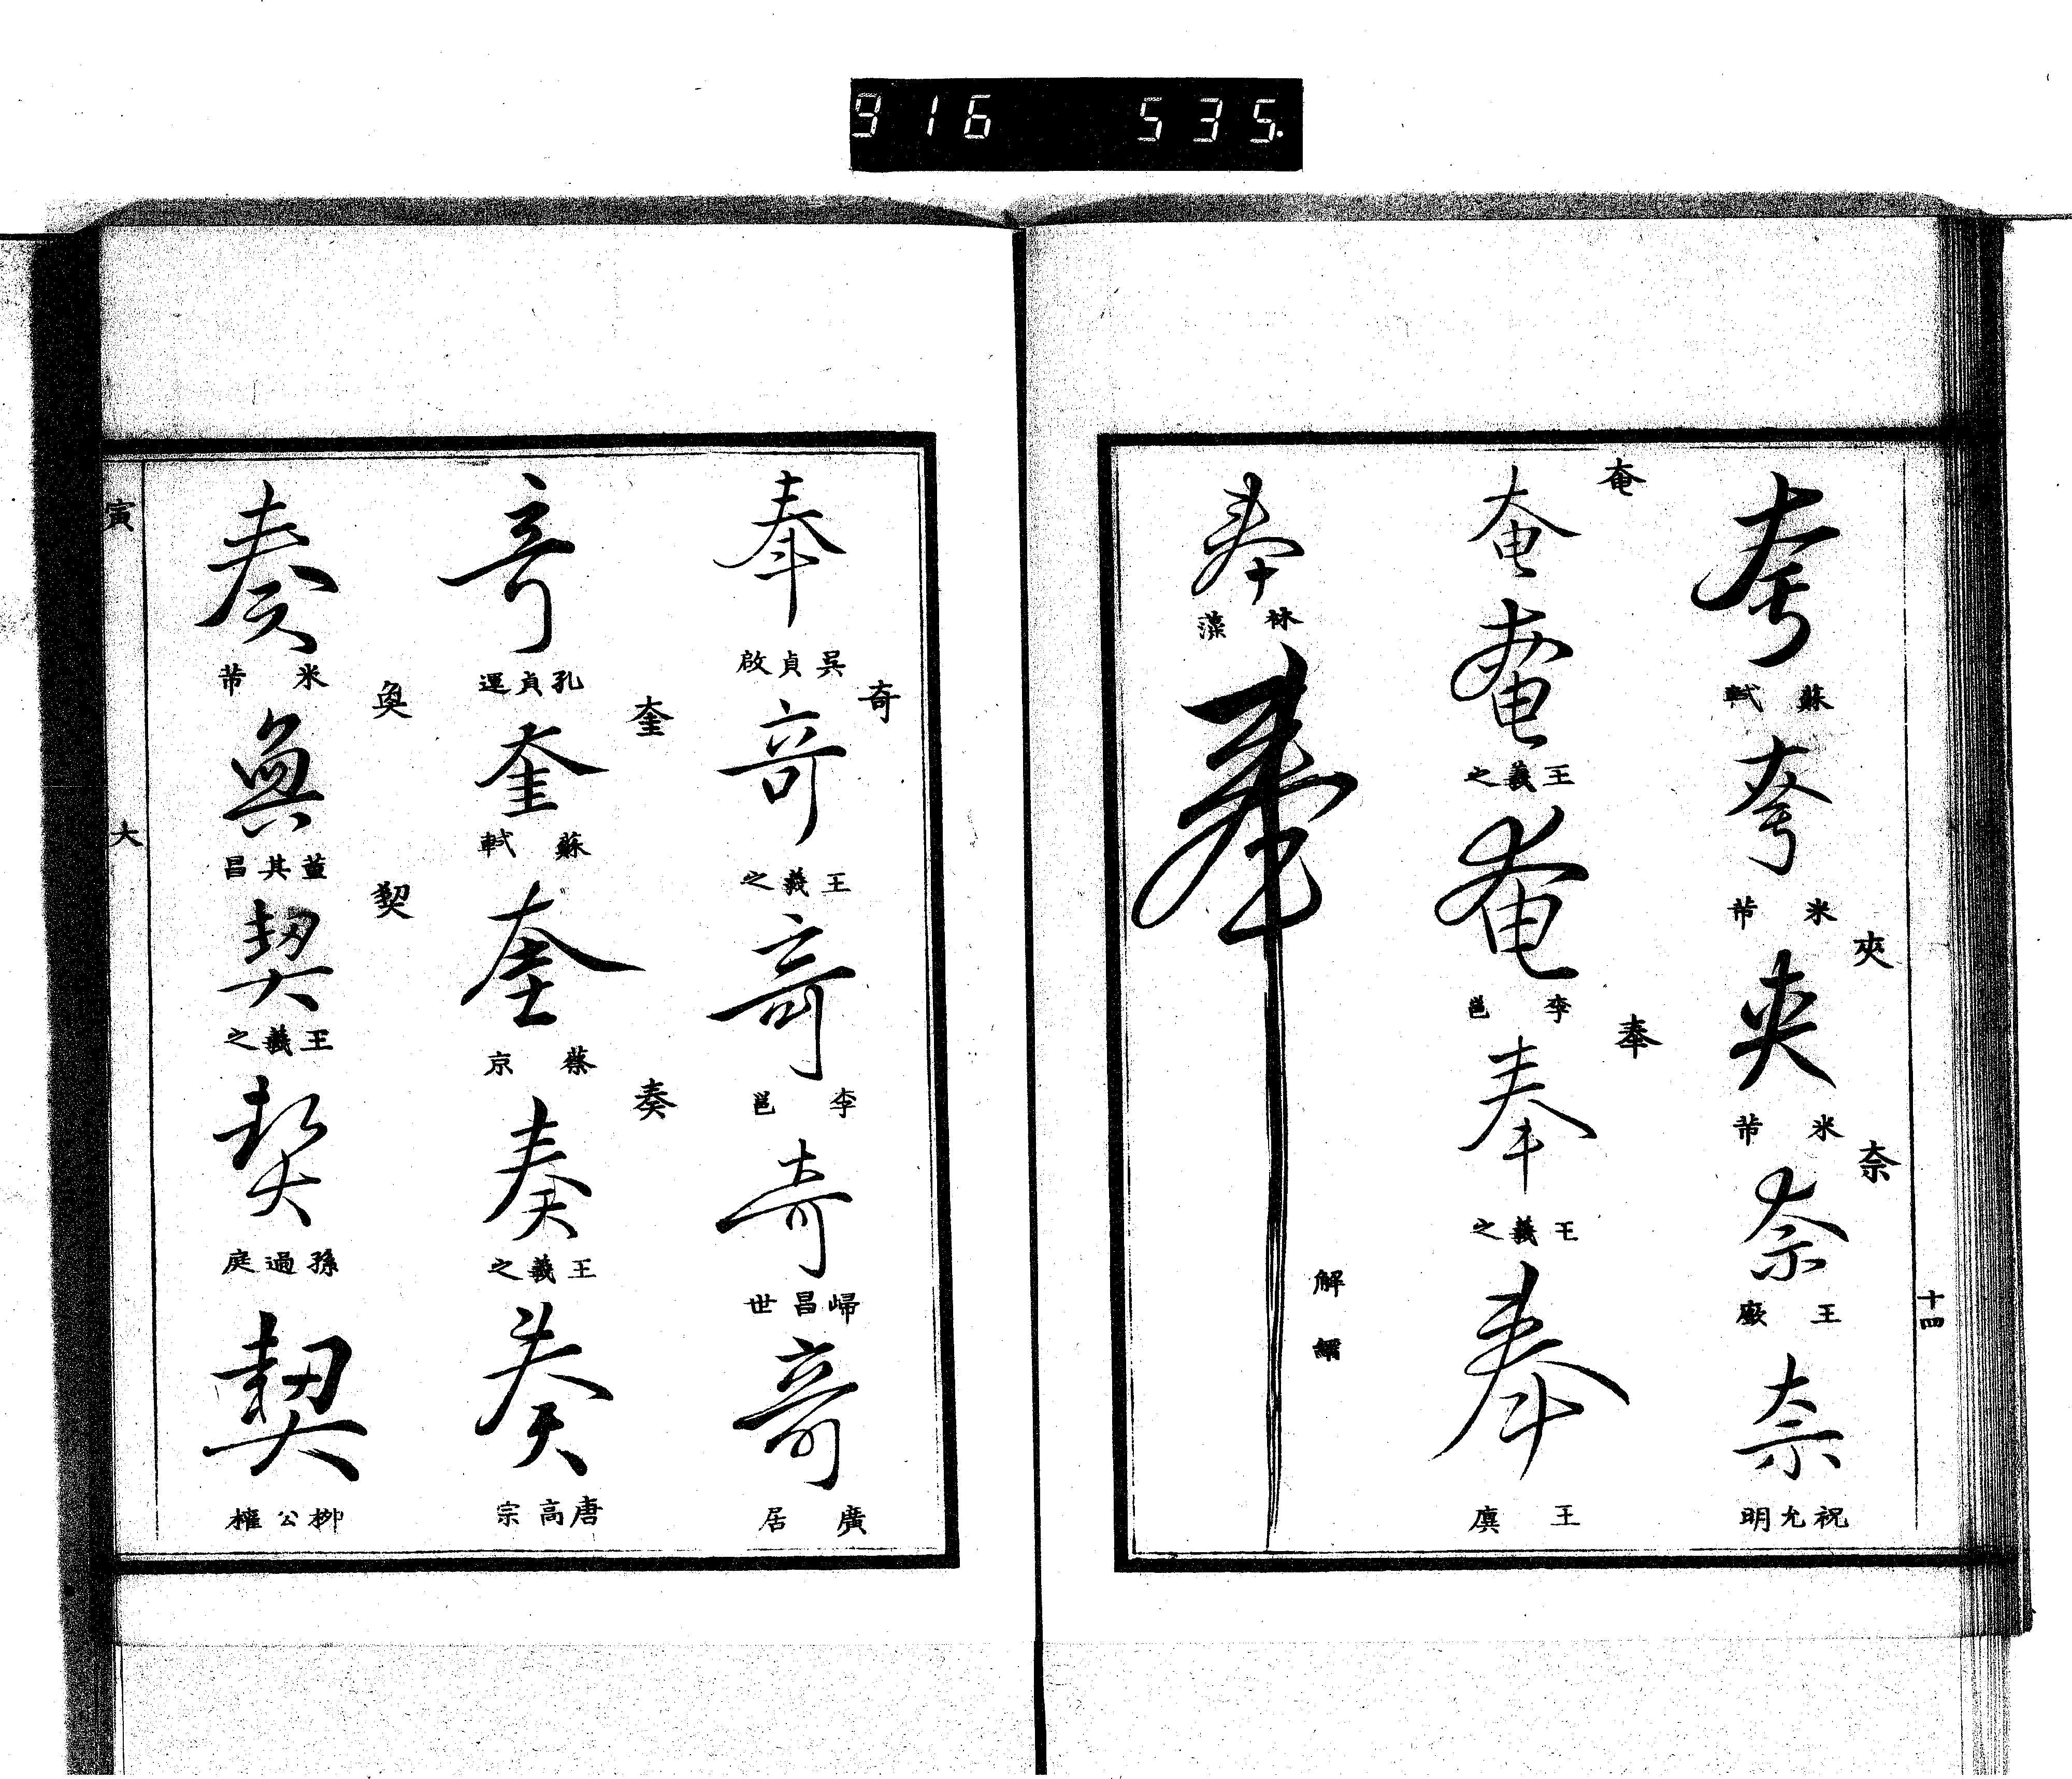 916 535.
十四
夸
蘇軾
夸
米芾
夾
夾
米芾
奈
奈
王廞
奈
祝允明
奄
奄
奄
王羲之
奄
李邕
奉
奉
王羲之
奉
王廙
奉
林藻
奉
解縉
奉
吳貞啟
奇
奇
王羲之
奇
李邕
奇
歸昌世
奇
廣居
奇
孔貞運
奎
奎
蘇軾
奎
蔡京
奏
奏
王羲之
奏
唐高宗
奏
米芾
奐
奐
董其昌
契
契
王羲之
契
孫過庭
契
柳公權
寅
大